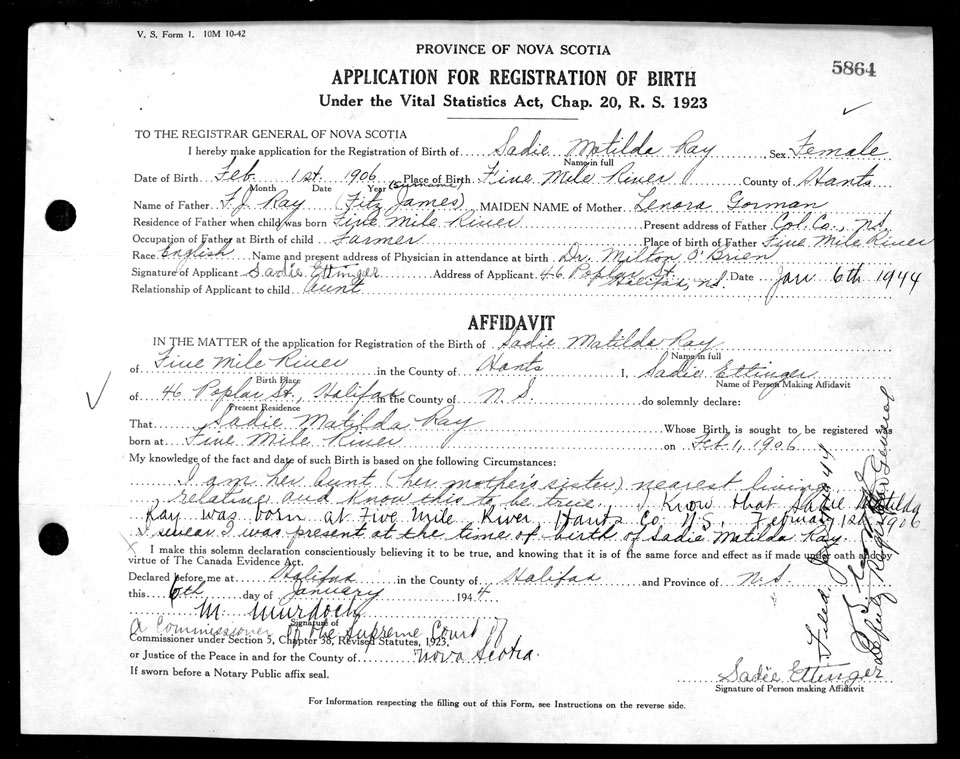 V. S. Form 1. 10M 10-42
PROVINCE OF NOVA SCOTIA
5864
APPLICATION FOR REGISTRATION OF BIRTH
Under the Vital Statistics Act, Chap. 20, R. S. 1923
TO THE REGISTRAR GENERAL OF NOVA SCOTIA
I hereby make application for the Registration of Birth of Sadie Matilda Ray, Sex Female
Name in full
Date of Birth Feb 1st. 1906 Place of Birth Five Mile River County of Hants
Month Date Year (Surname)
Name of Father F.J. Ray (Fitz James) MAIDEN NAME of Mother Lenora Gorman
Residence of Father when child was born Five Mile River Present address of Father Col. Co., N.S.
Occupation of Father at Birth of child Farmer Place of birth of Father Five Mile River
Race English Name and present address of Physician in attendance at birth Dr. Milton O'Brien
Signature of Applicant Sadie Ettinger Address of Applicant 46 Poplar St. Halifax, N.S. Date Jan 6th 1944
Relationship of Applicant to child Aunt
AFFIDAVIT
IN THE MATTER of the application for Registration of the Birth of Sadie Matilda Ray
Name in full
of Five Mile River in the County of Hants I, Sadie Ettinger
Birth Place Name of Person Making Affidavit
of 46 Poplar St., Halifax in the County of N.S. do solemnly declare:
Present Residence
That Sadie Matilda Ray Whose Birth is sought to be registered was
born at Five Mile River on Feb 1, 1906
My knowledge of the fact and date of such Birth is based on the following Circumstances:
I am her Aunt (her mother's sister) nearest living
relative and know this to be true. I know that Sadie Matilda
Ray was born at Five Mile River, Hants Co. N.S. February 1st 1906
I swear I was present at the time of birth of Sadie Matilda Ray.
I make this solemn declaration conscientiously believing it to be true, and knowing that it is of the same force and effect as if made under oath and by
virtue of The Canada Evidence Act.
Declared before me at Halifax in the County of Halifax and Province of N.S.
this 6th day of January 1944
M Murdoch
Signature of
A Commissioner of the Supreme Court of
Commissioner under Section 5, Chapter 38, Revised Statutes, 1923,
or Justice of the Peace in and for the County of Nova Scotia.
If sworn before a Notary Public affix seal.
Sadie Ettinger
Signature of Person making Affidavit
For Information respecting the filling out of this Form, see Instructions on the reverse side.
Filed. 1944
Deputy Registrar General